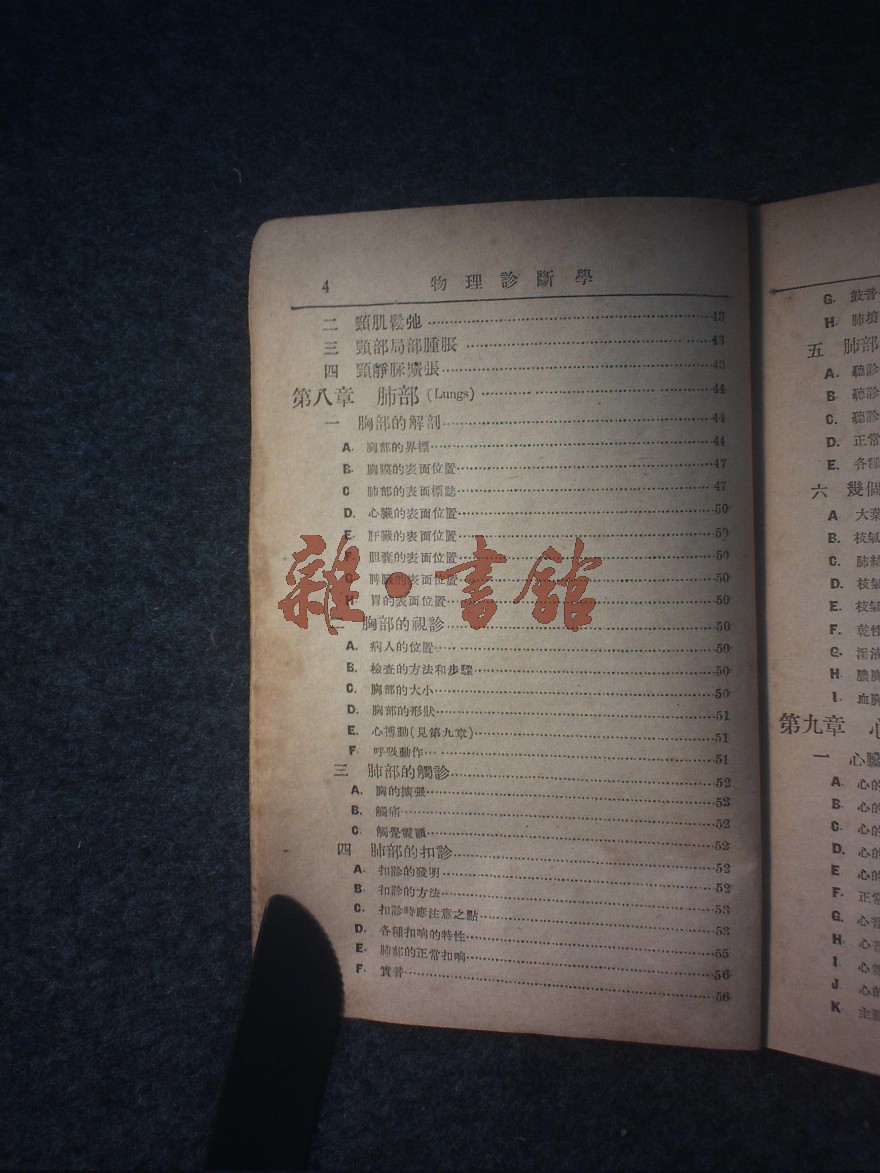 4 物理診斷學
二 頸肌鬆弛 43
三 頸部局部腫脹 43
四 頸靜脈擴張 43
第八章 肺部 (Lungs) 44
一 胸部的解剖 44
A. 胸部的界標 44
B. 胸膜的表面位置 47
C 肺部的表面標誌 47
D. 心臟的表面位置 50
E. 肝臟的表面位置 50
F. 胆囊的表面位置 50
G 脾臟的表面位置 50
H 胃的表面位置 50
二 胸部的視診 50
A. 病人的位置 50
B. 檢查的方法和步驟 50
C. 胸部的大小 50
D. 胸部的形狀 51
E. 心搏動(見第九章) 51
F. 呼吸動作 51
三 肺部的觸診 52
A. 胸的擴張 52
B. 觸痛 52
C. 觸覺震顫 52
四 肺部的扣診 52
A. 扣診的發明 52
B. 扣診的方法 53
C. 扣診時應注意之點 53
D. 各種扣响的特性 55
E. 肺部的正常扣响 56
F. 實音 56
雜·書館
G. 鼓音
H. 肺
五 肺部
A. 聽診
B. 聽診
C. 聽診
D. 正常
E. 各種
六 幾個
A 大葉
B. 枝氣
C. 肺
D. 枝氣
E. 枝氣
F. 乾性
G.
H. 膿胸
I. 血胸
第九章 心
一 心臟
A. 心的
B. 心的
C. 心的
D. 心的
E 心的
F. 正常
G. 心音
H. 心音
I. 心
J. 心的
K 主動